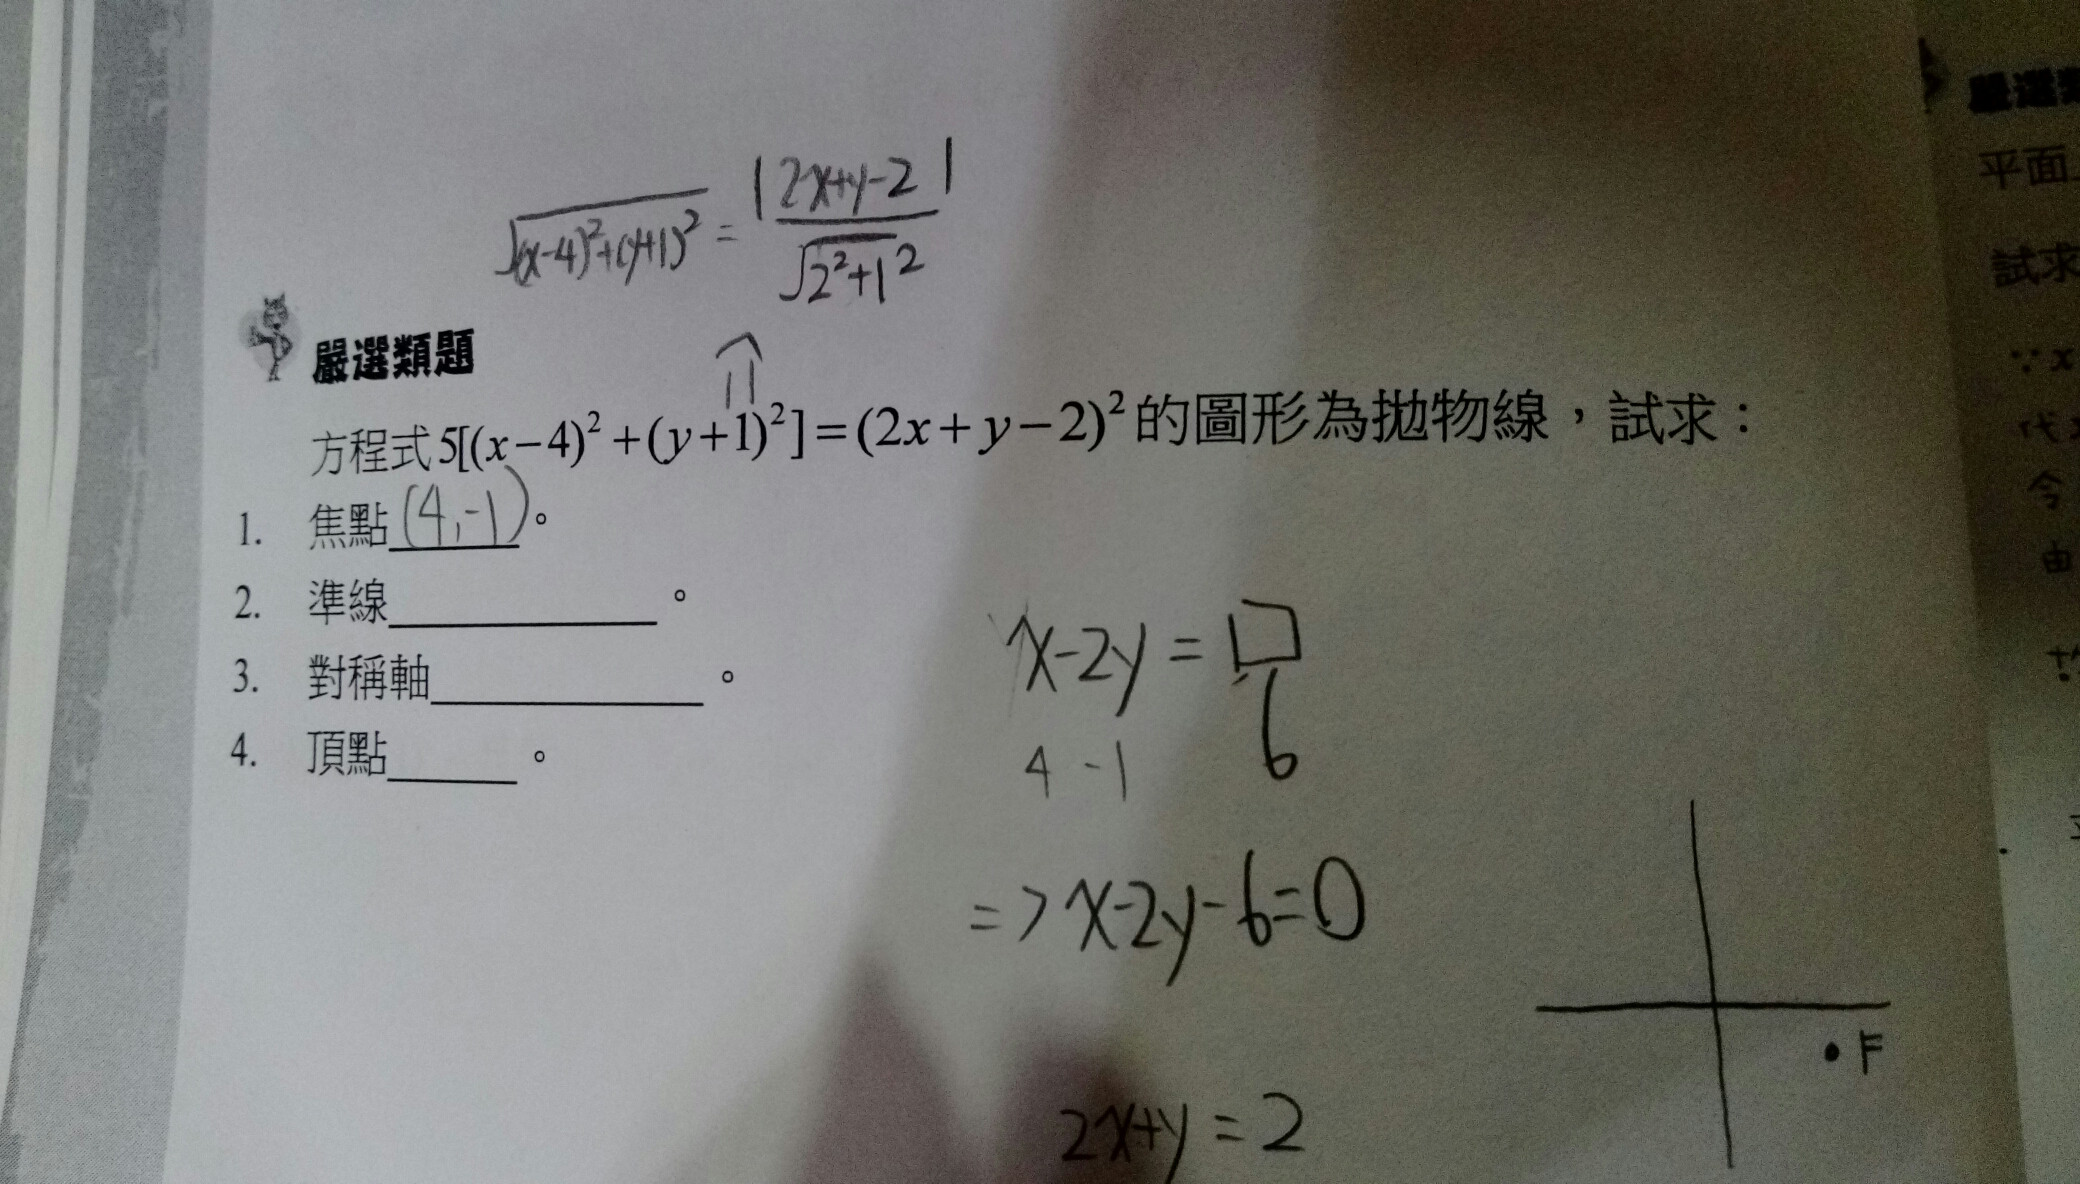 √(x-4)²+(y+1)² = |2x+y-2| / √2²+1²
嚴選類題
方程式5[(x-4)²+(y+1)²]=(2x+y-2)²的圖形為拋物線，試求：
1. 焦點(4,-1)。
2. 準線________。
3. 對稱軸________。
4. 頂點____。
x-2y=□
4 -1 6
=> x-2y-6=0
F
2x+y=2
嚴選類
平面
試求
∵x
代
令
由